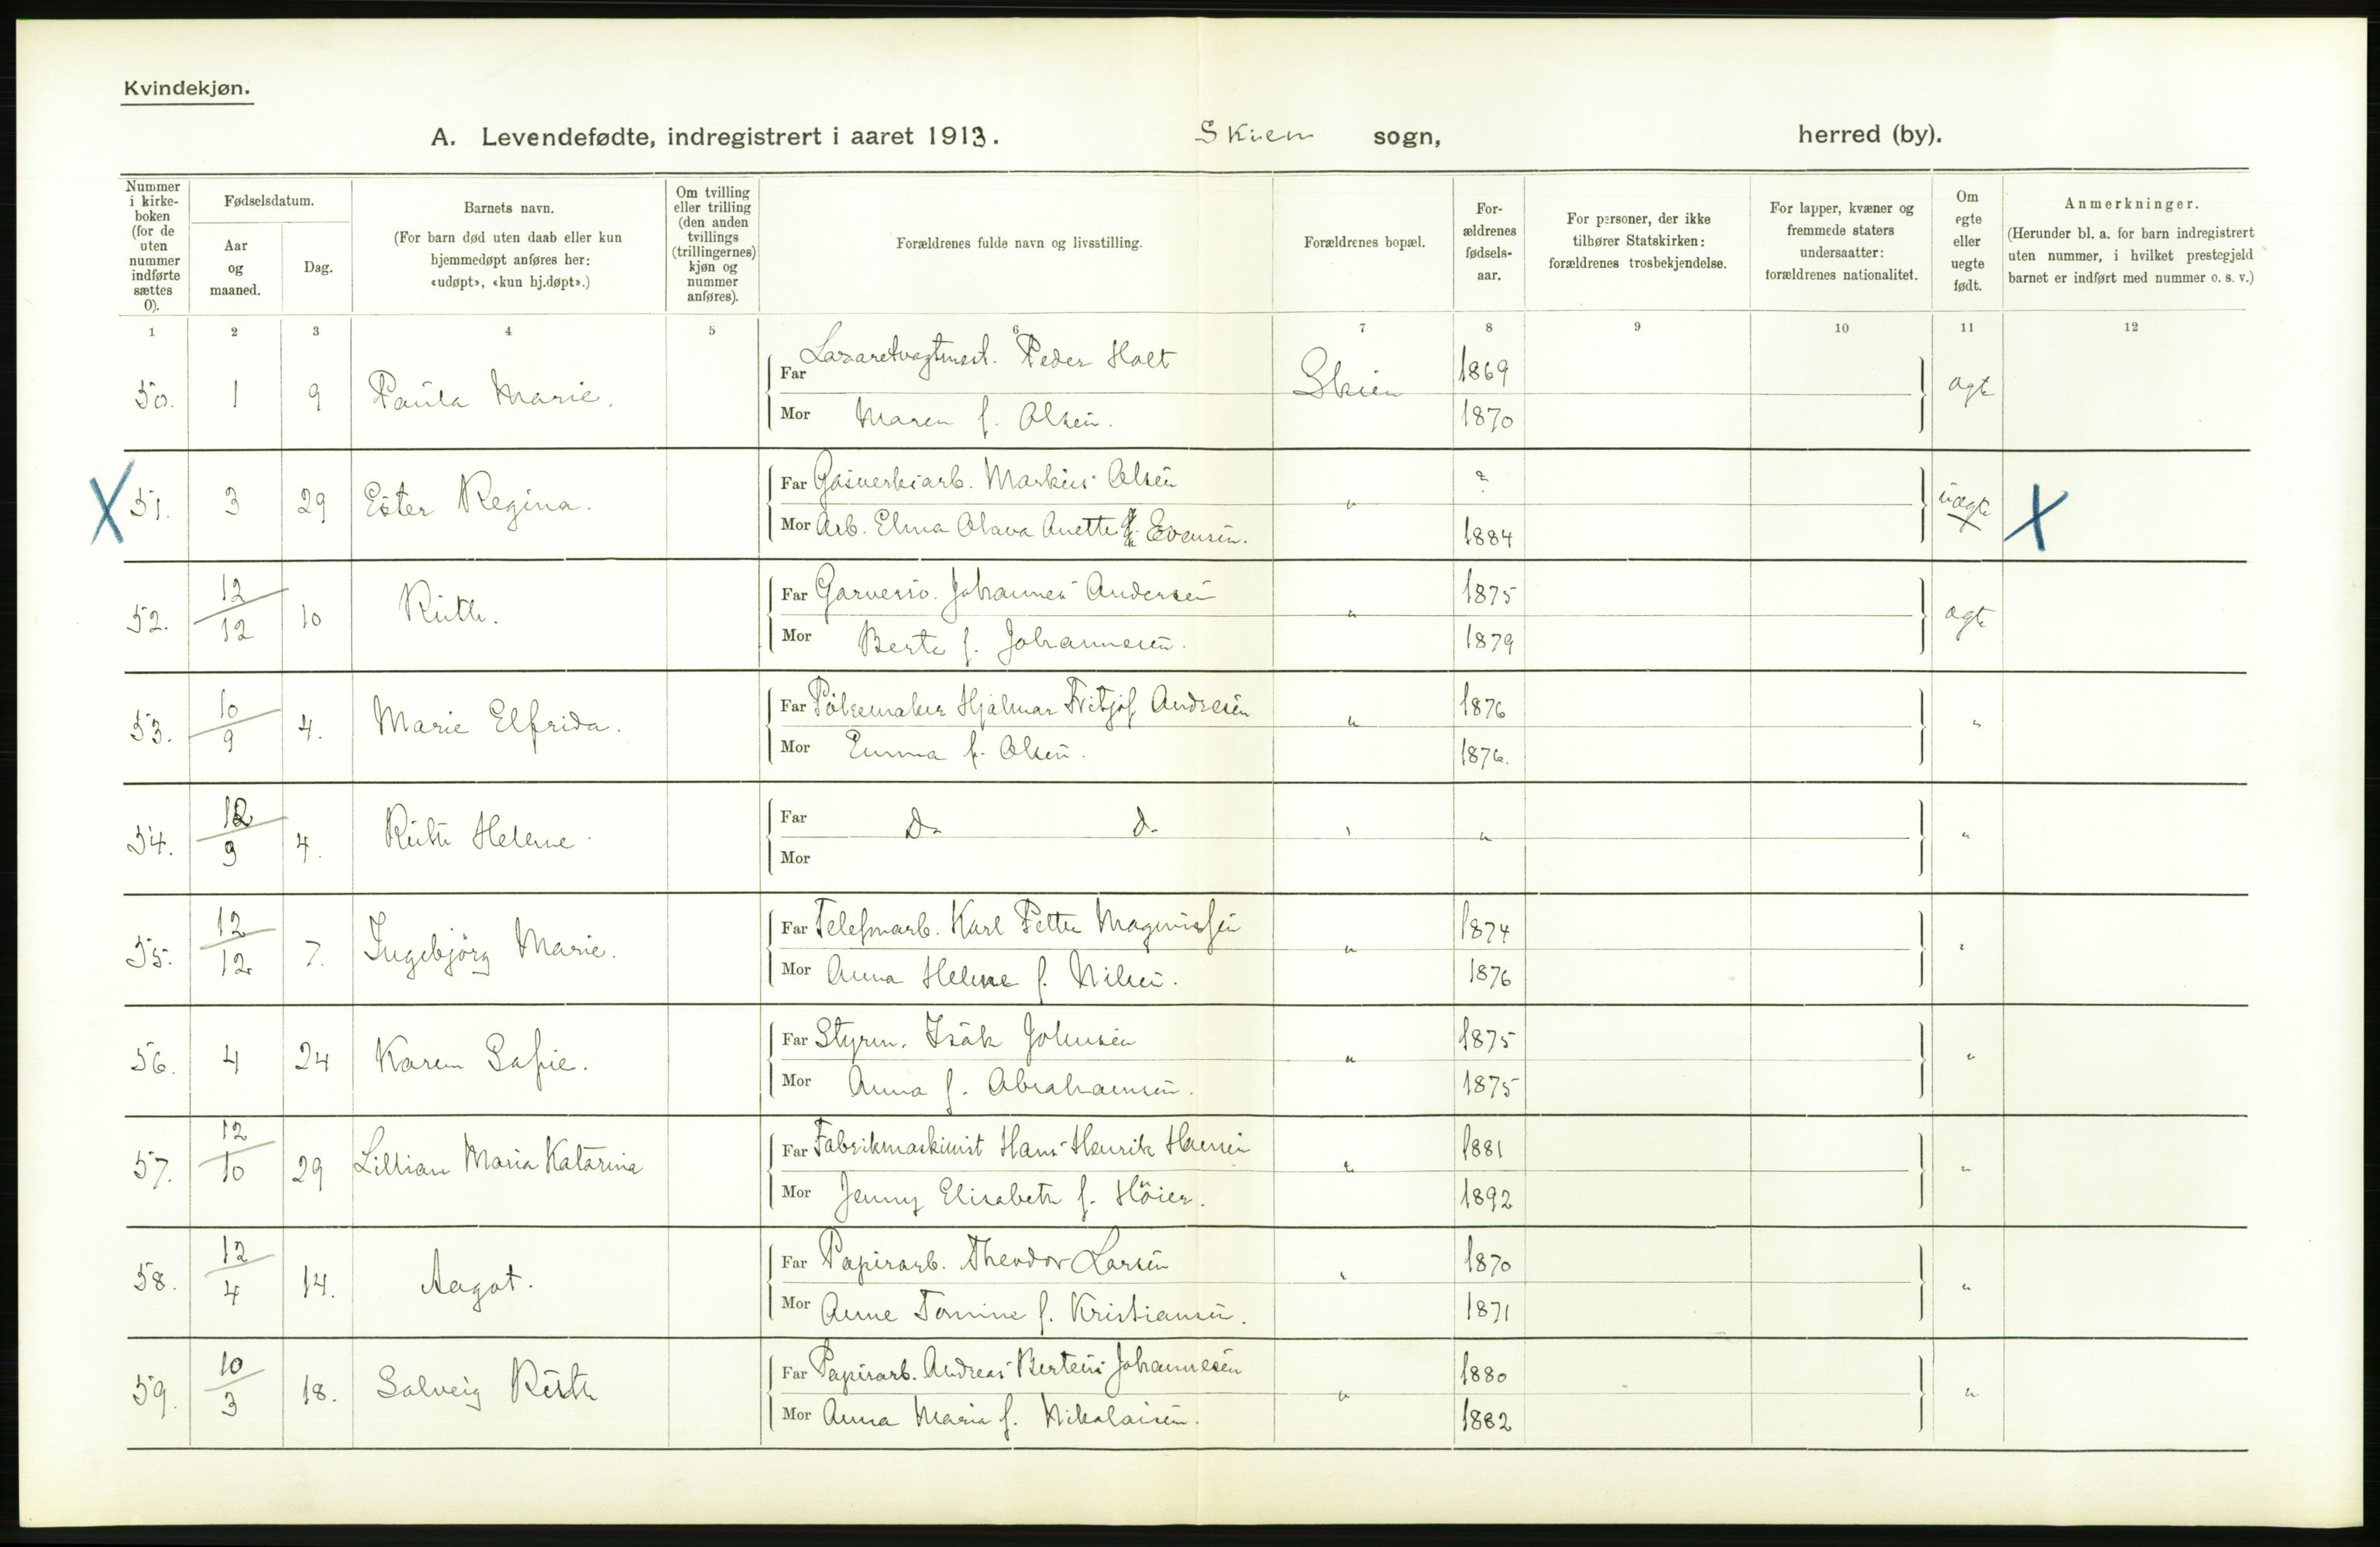 Kvindekjøn.
A. Levendefødte, indregistrert i aaret 1913. Skien sogn, herred (by).
Nummer i kirke-boken (for de uten nummer indførte sættes 0).
Fødselsdatum.
Aar og maaned.
Dag.
Barnets navn.
(For barn død uten daab eller kun hjemmedøpt anføres her: «udøpt», «kun hj.døpt».)
Om tvilling eller trilling (den anden tvillings (trillingernes) kjøn og nummer anføres).
Forældrenes fulde navn og livsstilling.
Forældrenes bopæl.
For-ældrenes fødsels-aar.
For personer, der ikke tilhører Statskirken: forældrenes trosbekjendelse.
For lapper, kvæner og fremmede staters undersaatter: forældrenes nationalitet.
Om egte eller uegte født.
Anmerkninger.
(Herunder bl. a. for barn indregistrert uten nummer, i hvilket prestegjeld barnet er indført med nummer o. s. v.)
1 2 3 4 5 6 7 8 9 10 11 12
50. 1 9 Paula Marie. Far Lazaretvagtmest. Peder Holt Skien 1869 ægte
Mor Maren f. Olsen. 1870
X 51. 3 29 Ester Regina. Far Gasverksarb. Markus Olsen " ? uægte X
Mor Arb. Elma Olava Anette Evensen. 1884
52. 12/12 10 Ruth. Far Garversv. Johannes Andersen " 1875 ægte
Mor Berte f. Johannesen. 1879
53. 10/9 4. Marie Elfrida. Far Pølsemaker Hjalmar Fritjof Andresen " 1876 "
Mor Emma f. Olsen. 1876.
54. 12/9 4. Ruth Helene Far Do do " " "
Mor
55. 12/12 7. Ingebjörg Marie. Far Telefonarb. Karl Petter Magnussen " 1874 "
Mor Anna Helene f. Nilsen. 1876
56. 4 24 Karen Sofie. Far Styrm. Isak Johnsen " 1875 "
Mor Anna f. Abrahamsen. 1875
57. 12/10 29 Lillian Maria Katarina Far Fabrikmaskinist Hans Henrik Hansen " 1881 "
Mor Jenny Elisabeth f. Höier. 1892
58. 12/4 14. Aagot. Far Papirarb. Theodor Larsen " 1870 "
Mor Anne Tomine f. Kristiansen. 1871
59. 10/3 18. Solveig Ruth Far Papirarb. Andreas Bertens Johannesen " 1880 "
Mor Anna Maria f. Nikolaisen. 1882